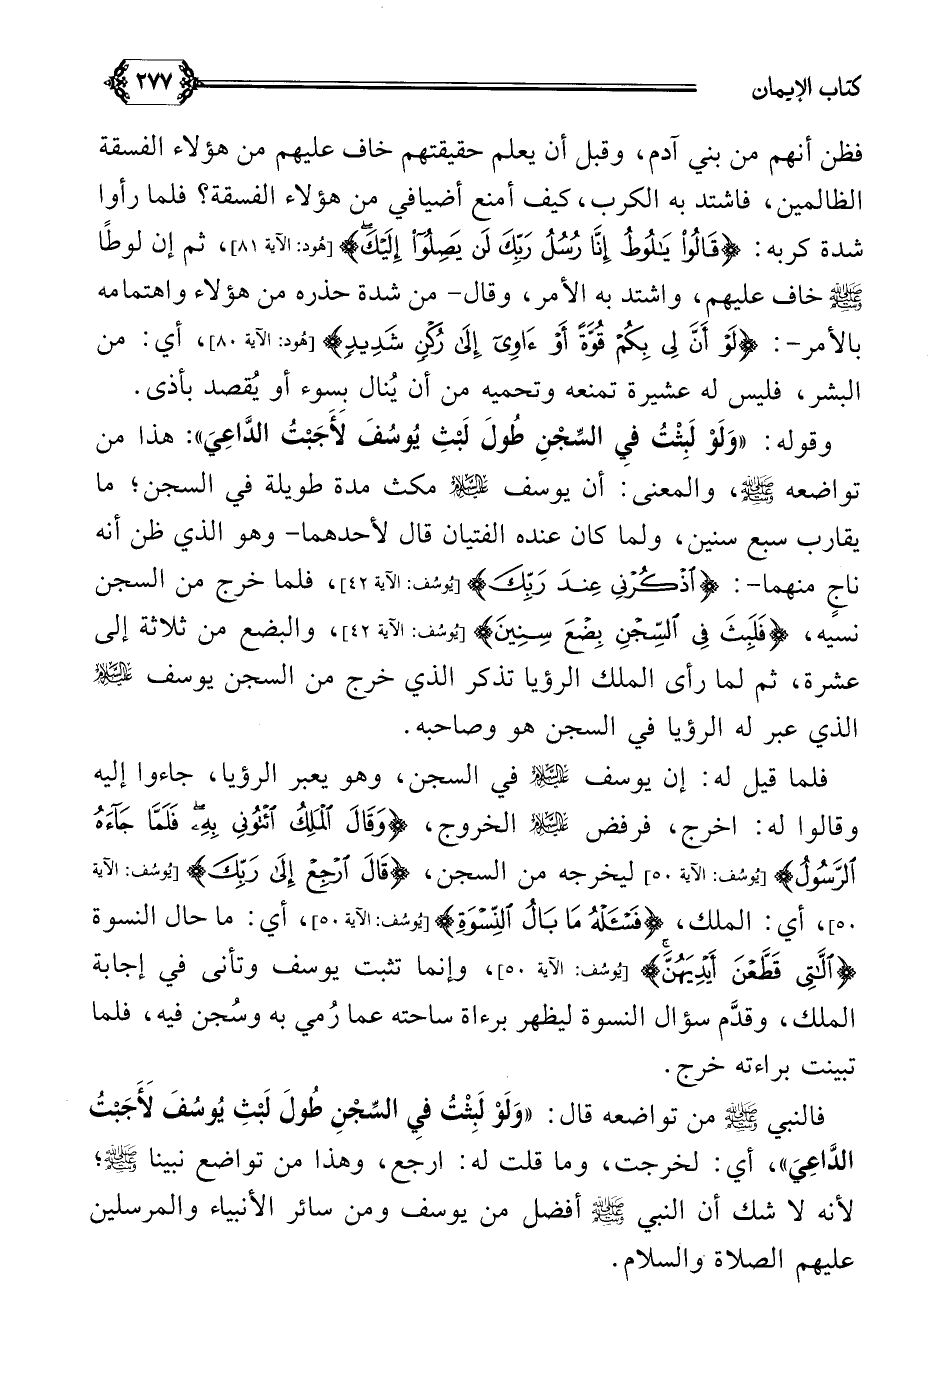 كتاب الإيمان
٢٧٧
فظن أنهم من بني آدم، وقبل أن يعلم حقيقتهم خاف عليهم من هؤلاء الفسقة
الظالمين، فاشتد به الكرب، كيف أمنع أضيافي من هؤلاء الفسقة؟ فلما رأوا
شدة كربه: ﴿قَالُوا۟ يَٰلُوطُ إِنَّا رُسُلُ رَبِّكَ لَن يَصِلُوٓا۟ إِلَيْكَۖ﴾ [هُود: الآية ٨١]، ثم إن لوطًا
ﷺ خاف عليهم، واشتد به الأمر، وقال- من شدة حذره من هؤلاء واهتمامه
بالأمر-: ﴿لَوْ أَنَّ لِى بِكُمْ قُوَّةً أَوْ ءَاوِىٓ إِلَىٰ رُكْنٍ شَدِيدٍ﴾ [هُود: الآية ٨٠]، أي: من
البشر، فليس له عشيرة تمنعه وتحميه من أن يُنال بسوء أو يُقصد بأذى.
وقوله: «وَلَوْ لَبِثْتُ فِي السِّجْنِ طُولَ لَبْثِ يُوسُفَ لَأَجَبْتُ الدَّاعِيَ»: هذا من
تواضعه ﷺ، والمعنى: أن يوسف عليه السلام مكث مدة طويلة في السجن؛ ما
يقارب سبع سنين، ولما كان عنده الفتيان قال لأحدهما- وهو الذي ظن أنه
ناجٍ منهما-: ﴿ٱذْكُرْنِى عِندَ رَبِّكَ﴾ [يُوسُف: الآية ٤٢]، فلما خرج من السجن
نسيه، ﴿فَلَبِثَ فِى ٱلسِّجْنِ بِضْعَ سِنِينَ﴾ [يُوسُف: الآية ٤٢]، والبضع من ثلاثة إلى
عشرة، ثم لما رأى الملك الرؤيا تذكر الذي خرج من السجن يوسف عليه السلام
الذي عبر له الرؤيا في السجن هو وصاحبه.
فلما قيل له: إن يوسف عليه السلام في السجن، وهو يعبر الرؤيا، جاءوا إليه
وقالوا له: اخرج، فرفض عليه السلام الخروج، ﴿وَقَالَ ٱلْمَلِكُ ٱئْتُونِى بِهِۦۖ فَلَمَّا جَآءَهُ
ٱلرَّسُولُ﴾ [يُوسُف: الآية ٥٠] ليخرجه من السجن، ﴿قَالَ ٱرْجِعْ إِلَىٰ رَبِّكَ﴾ [يُوسُف: الآية
٥٠]، أي: الملك، ﴿فَسْـَٔلْهُ مَا بَالُ ٱلنِّسْوَةِ﴾ [يُوسُف: الآية ٥٠]، أي: ما حال النسوة
﴿ٱلَّٰتِى قَطَّعْنَ أَيْدِيَهُنَّۚ﴾ [يُوسُف: الآية ٥٠]، وإنما تثبت يوسف وتأنى في إجابة
الملك، وقدَّم سؤال النسوة ليظهر براءة ساحته عما رُمي به وسُجن فيه، فلما
تبينت براءته خرج.
فالنبي ﷺ من تواضعه قال: «وَلَوْ لَبِثْتُ فِي السِّجْنِ طُولَ لَبْثِ يُوسُفَ لَأَجَبْتُ
الدَّاعِيَ»، أي: لخرجت، وما قلت له: ارجع، وهذا من تواضع نبينا ﷺ؛
لأنه لا شك أن النبي ﷺ أفضل من يوسف ومن سائر الأنبياء والمرسلين
عليهم الصلاة والسلام.